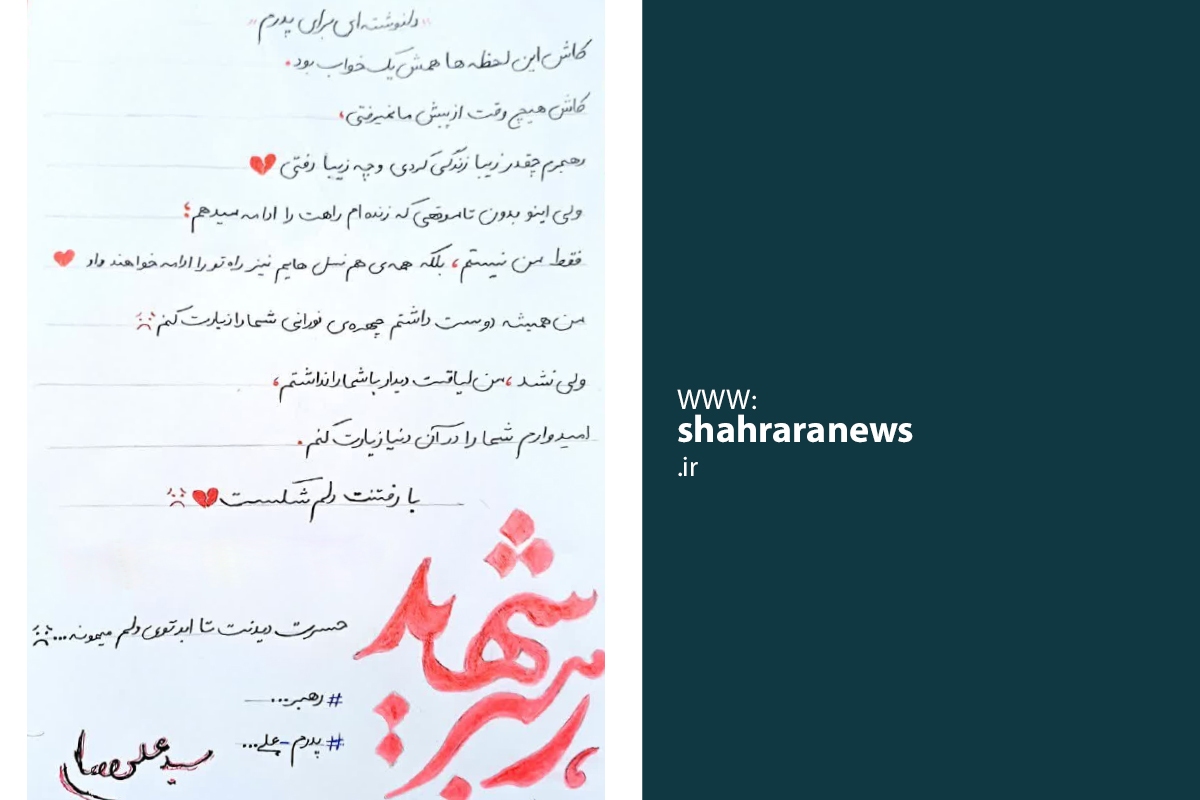 "دلنوشته‌ای برای پدرم"
کاش این لحظه ها همش یک خواب بود.
کاش هیچ وقت از پیش ما نمیرفتی،
رهبرم چقدر زیبا زندگی کردی و چه زیبا رفتی
ولی اینو بدون تا موقعی که زنده ام راهت را ادامه میدهم؛
فقط من نیستم، بلکه همه‌ی هم نسل هایم نیز راه تو را ادامه خواهند داد
من همیشه دوست داشتم چهره‌ی نورانی شما را زیارت کنم
ولی نشد، من لیاقت دیدار با شما را نداشتم،
امیدوارم شما را در آن دنیا زیارت کنم.
با رفتنت دلم شکست
حسرت دیدنت تا ابد توی دلم میمونه...
#رهبر...
#پدرم-علی...
رهبر شهید
سید علی
WWW:
shahraranews
.ir